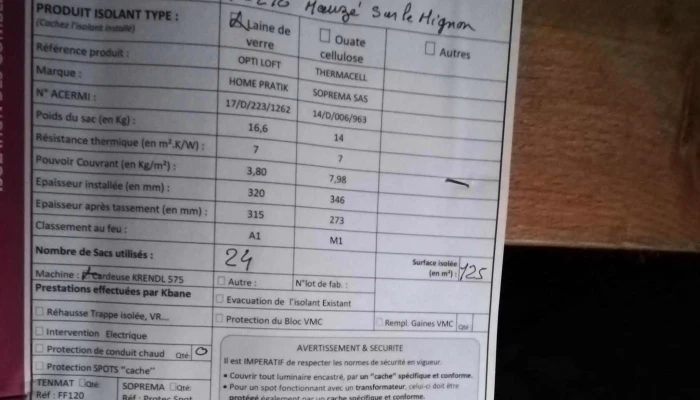 Mauzé sur le Mignon
PRODUIT ISOLANT TYPE : Laine de verre Ouate cellulose Autres
(Cachez l'isolant installé)
Référence produit : OPTI LOFT THERMACELL
Marque : HOME PRATIK SOPREMA SAS
N° ACERMI : 17/D/223/1262 14/D/006/963
Poids du sac (en Kg) : 16,6 14
Résistance thermique (en m².K/W) : 7 7
Pouvoir Couvrant (en Kg/m²) : 3,80 7,98
Epaisseur installée (en mm) : 320 346
Epaisseur après tassement (en mm) : 315 273
Classement au feu : A1 M1
Nombre de Sacs utilisés : 24 Surface isolée (en m²) : 125
Machine : Cardeuse KRENDL 575 Autre : N°lot de fab. :
Prestations effectuées par Kbane
Evacuation de l'isolant Existant
Réhausse Trappe isolée, VR...
Protection du Bloc VMC Rempl. Gaines VMC Qté
Intervention Electrique
Protection de conduit chaud Qté 0
Protection SPOTS "cache"
TENMAT Qté: SOPREMA Qté:
Réf : FF120 Réf : Protec Spot
AVERTISSEMENT & SECURITE
Il est IMPERATIF de respecter les normes de sécurité en vigueur.
• Couvrir tout luminaire encastré, par un "cache" spécifique et conforme.
• Pour un spot fonctionnant avec un transformateur, celui-ci doit être
protégé également par un cache spécifique et conforme.